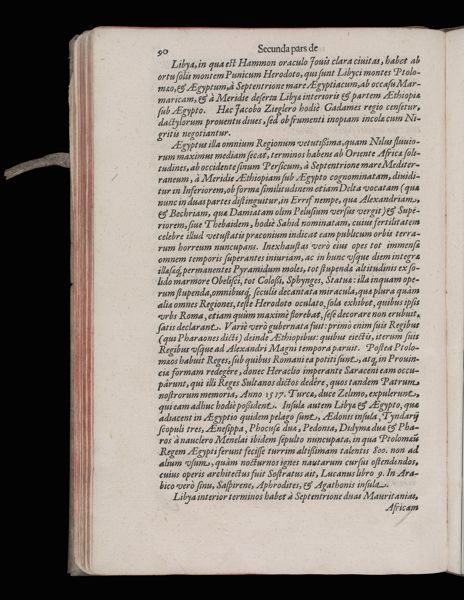 90 Secunda pars de
Libya, in qua est Hammon oraculo Jouis clara ciuitas, habet ab
ortu solis montem Punicum Herodoto, qui sunt Libyci montes Ptolo-
mæo, & Ægyptum, à Septentrione mare Ægyptiacum, ab occasu Mar-
maricam, & à Meridie deserta Libyæ interioris & partem Æthiopiæ
sub Ægypto. Hæc Jacobo Zieglero hodiè Gadames regio censetur,
dactylorum prouentu diues, sed ob frumenti inopiam incolæ cum Ni-
gritis negotiantur.
Ægyptus illa omnium Regionum vetutissima, quam Nilus fluuio-
rum maximus mediam secat, terminos habens ab Oriente Africæ soli-
tudines, ab occidente sinum Persicum, à Septentrione mare Mediter-
raneum, à Meridie Æthiopiam sub Ægypto cognominatam, diuidi-
tur in Inferiorem, ob formæ similitudinem etiam Delta vocatam (quæ
nunc in duas partes distinguitur, in Errif nempe, quæ Alexandriam,
& Bechriam, quæ Damiatam olim Pelusium versus vergit) & Supe-
riorem, siue Thebaidem, hodiè Sahid nominatam, cuius fertilitatem
celebre illud vetustatis præconium indicat eam publicum orbis terra-
rum horreum nuncupans. Inexhaustas verò eius opes tot immensæ
omnem temporis superantes iniuriam, ac in hunc vsque diem integræ
illæsæq; permanentes Pyramidum moles, tot stupendæ altitudinis ex so-
lido marmore Obelisci, tot Colossi, Sphynges, Statuæ: illa inquam ope-
rum stupenda, omnibusq; seculis decantata miracula, quæ plura quàm
aliæ omnes Regiones, teste Herodoto oculato, sola exhibet, quibus ipsis
vrbs Roma, etiam quùm maximè florebat, sese decorare non erubuit,
satis declarant. Variè verò gubernata fuit: primò enim suis Regibus
(qui Pharaones dicti) deinde Æthiopibus: quibus eiectis, iterum suis
Regibus vsque ad Alexandri Magni tempora paruit. Postea Ptolo-
mæos habuit Reges, sub quibus Romani ea potiti sunt, atq; in Prouin-
ciæ formam redegêre, donec Heraclio imperante Saraceni eam occu-
pârunt, qui illi Reges Sultanos dictos dedêre, quos tandem Patrum
nostrorum memoria, Anno 1517. Turcæ, duce Zelimo, expulerunt,
qui eam adhuc hodiè possident. Insulæ autem Libyæ & Ægypto, quæ
adiacent in Ægyptio quidem pelago sunt, Ædonis insula, Tyndarij
scopuli tres, Ænesippa, Phocusæ duæ, Pedonia, Didymæ duæ & Pha-
ros à nauclero Menelai ibidem sepulto nuncupata, in qua Ptolomæum
Regem Ægypti ferunt fecisse turrim altissimam talentis 800. non ad
alium vsum, quàm nocturnos ignes nautarum cursui ostendendos,
cuius operis architectus fuit Sostratus ait, Lucanus libro 9. In Ara-
bico verò sinu, Saspirene, Aphrodites, & Agathonis insula.
Libya interior terminos habet à Septentrione duas Mauritanias,
Africam